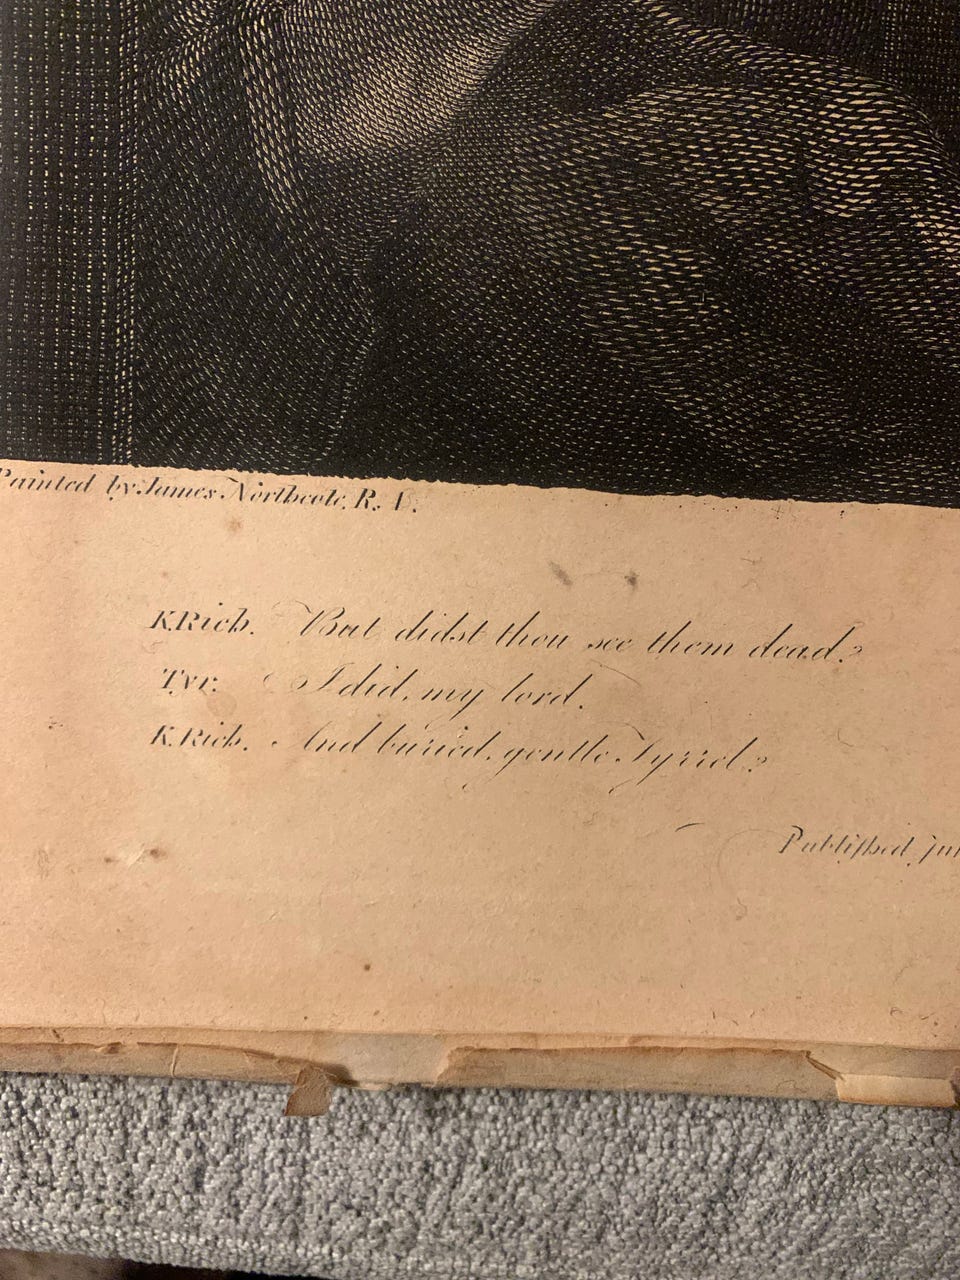 Painted by James Northcote, R.A.
K.Rich. But didst thou see them dead?
Tyr. I did, my lord.
K.Rich. And buried, gentle Tyrrel?
Publiſhed